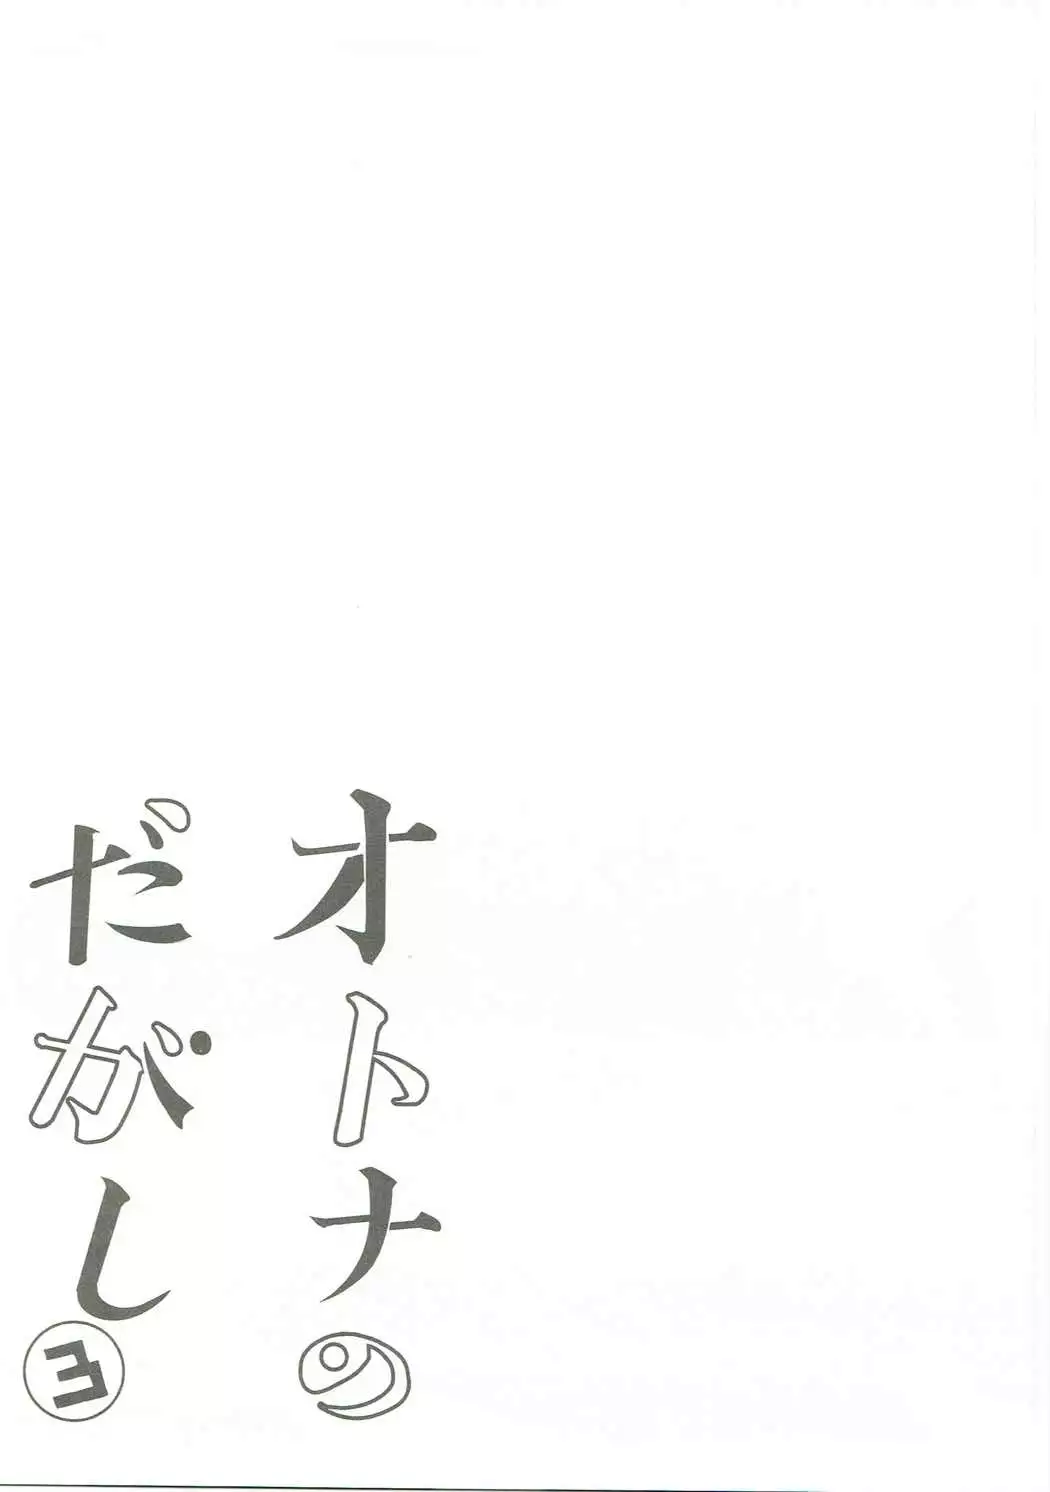 オトナの
だがし
3